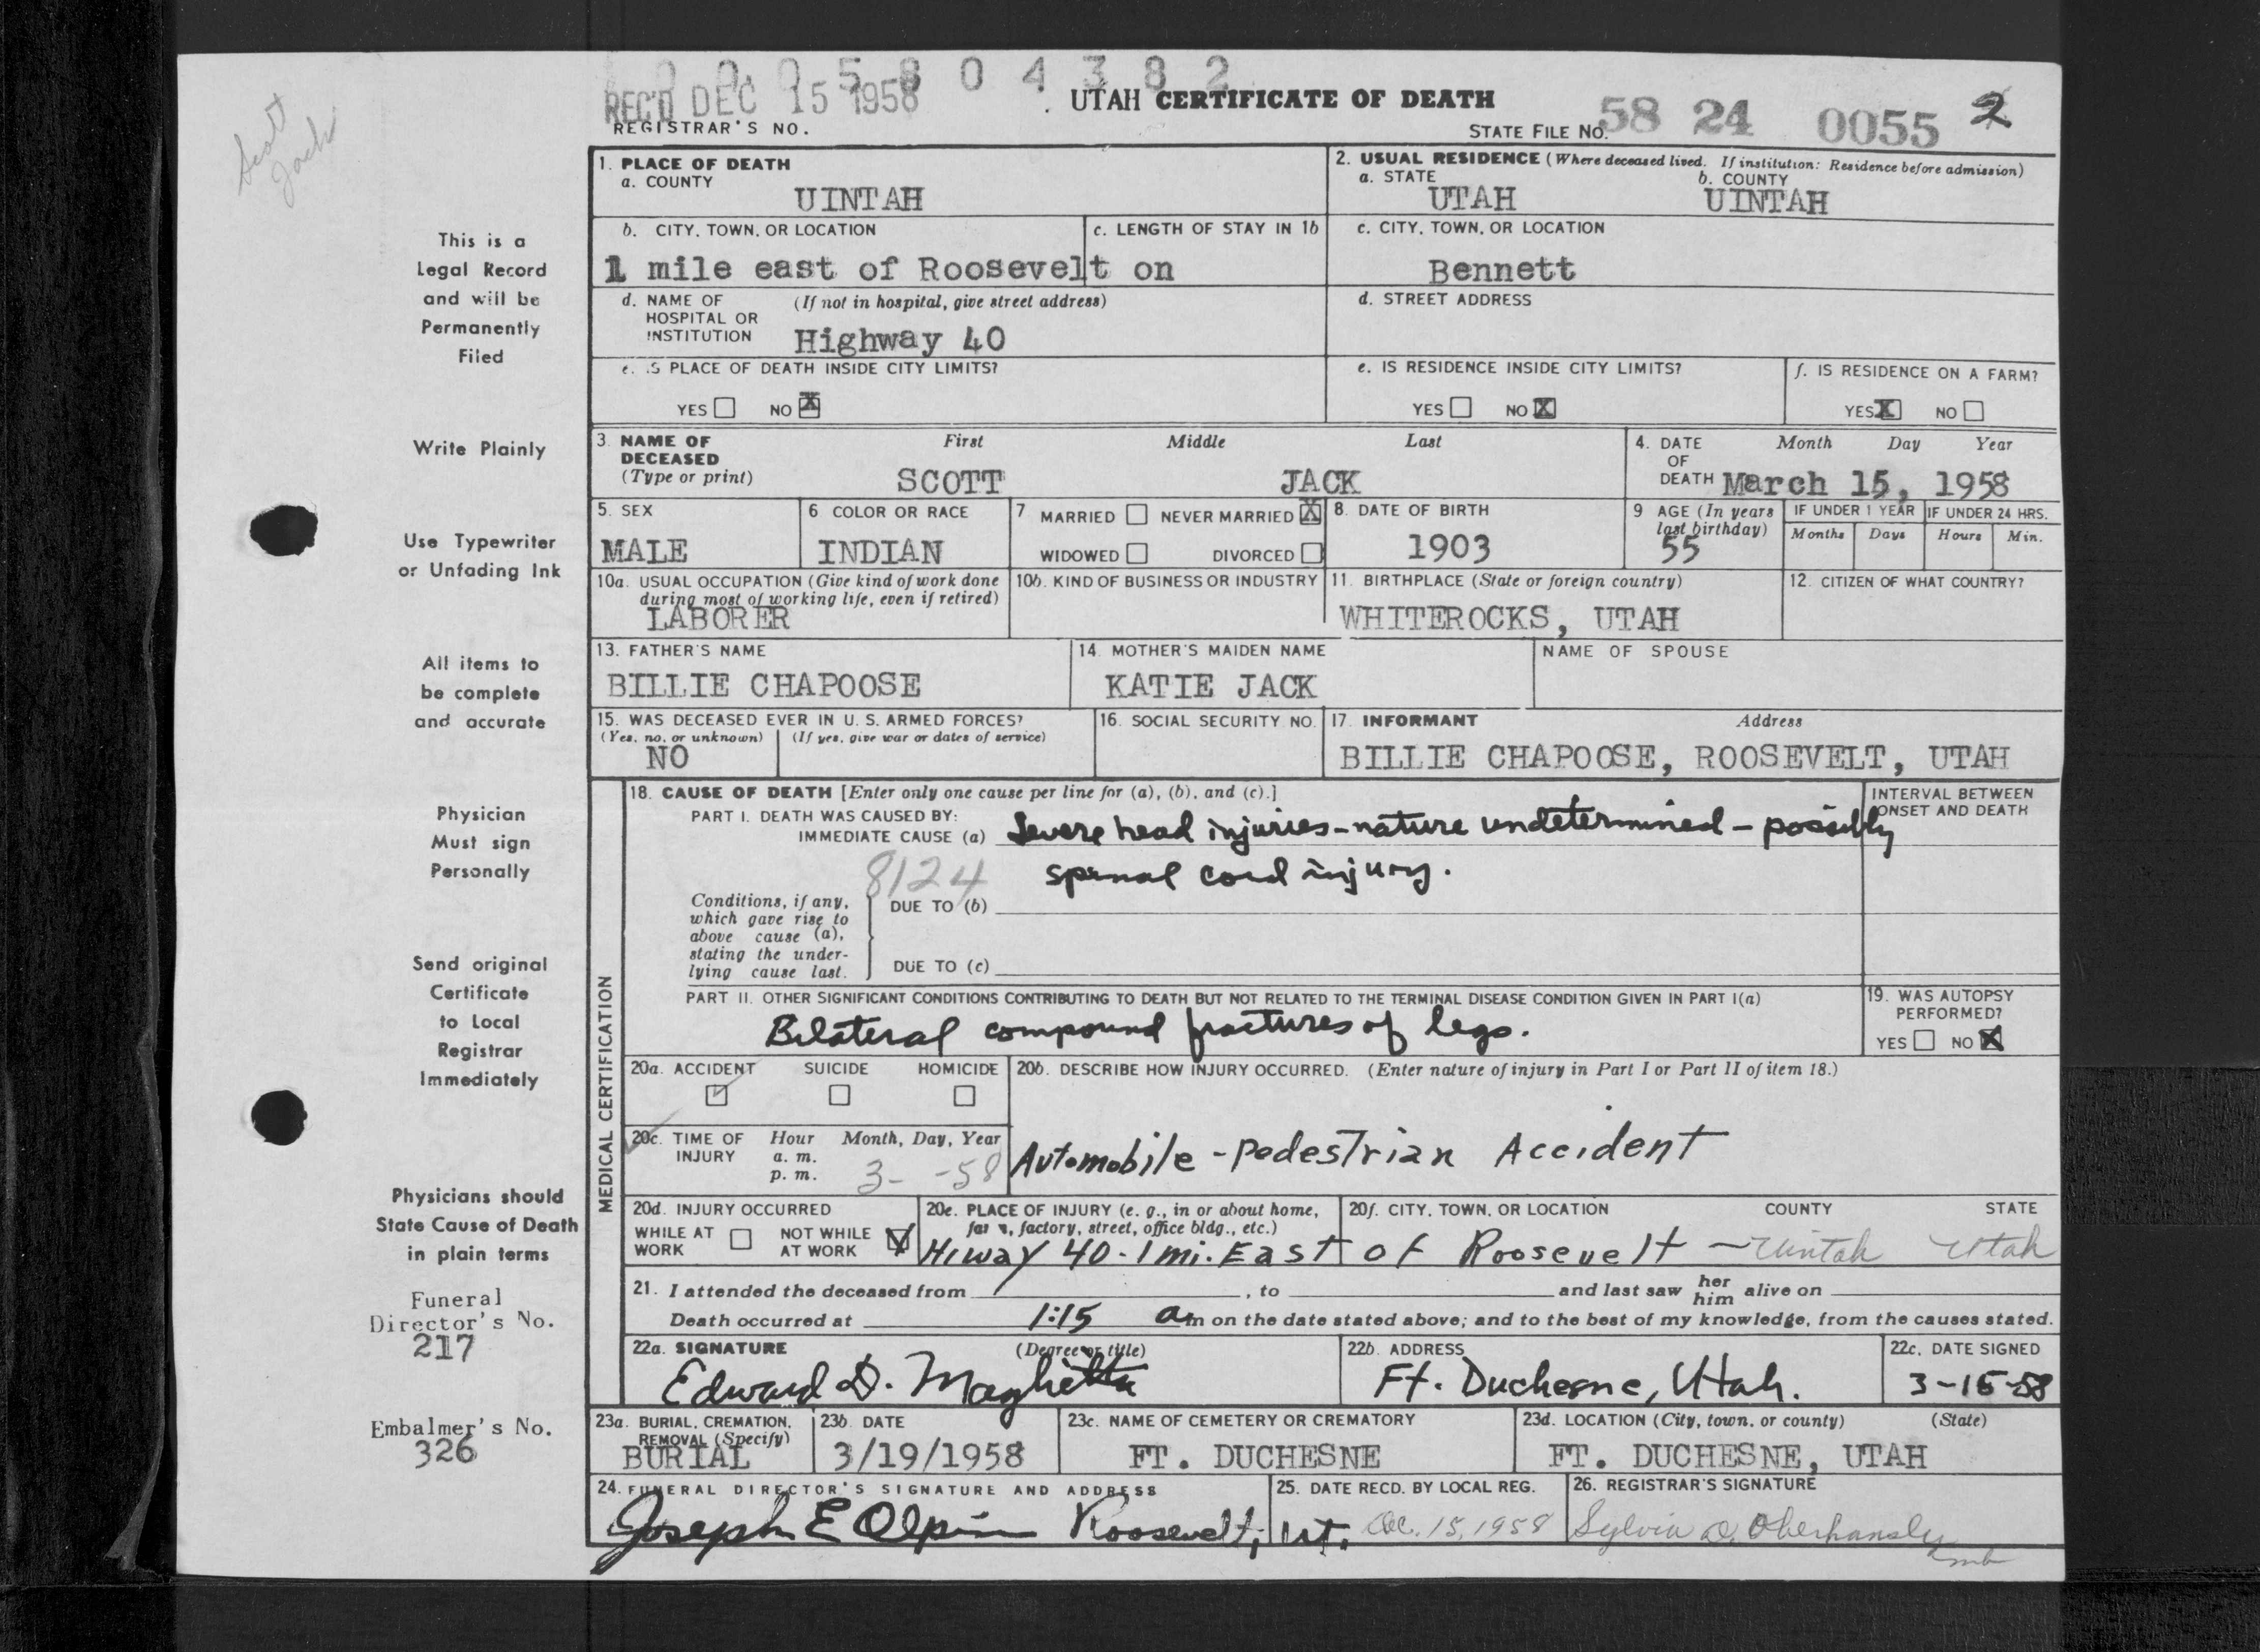 Scott
Jack
0 0 0 5 8 0 4 3 8 2
REC'D DEC 15 1958
UTAH CERTIFICATE OF DEATH
REGISTRAR'S NO.
STATE FILE NO. 58 24 0055 2
This is a
Legal Record
and will be
Permanently
Filed
Write Plainly
Use Typewriter
or Unfading Ink
All items to
be complete
and accurate
Physician
Must sign
Personally
Send original
Certificate
to Local
Registrar
Immediately
Physicians should
State Cause of Death
in plain terms
Funeral
Director's No.
217
Embalmer's No.
326
1. PLACE OF DEATH
a. COUNTY
UINTAH
2. USUAL RESIDENCE (Where deceased lived. If institution: Residence before admission)
a. STATE
UTAH
b. COUNTY
UINTAH
b. CITY, TOWN, OR LOCATION
c. LENGTH OF STAY IN 1b
1 mile east of Roosevelt on
c. CITY, TOWN, OR LOCATION
Bennett
d. NAME OF HOSPITAL OR INSTITUTION
(If not in hospital, give street address)
Highway 40
d. STREET ADDRESS
e. IS PLACE OF DEATH INSIDE CITY LIMITS?
YES NO X
e. IS RESIDENCE INSIDE CITY LIMITS?
YES NO X
f. IS RESIDENCE ON A FARM?
YES X NO
3. NAME OF DECEASED
(Type or print)
First Middle Last
SCOTT JACK
4. DATE OF DEATH
Month Day Year
March 15, 1958
5. SEX
MALE
6 COLOR OR RACE
INDIAN
7 MARRIED NEVER MARRIED X
WIDOWED DIVORCED
8. DATE OF BIRTH
1903
9 AGE (In years last birthday)
55
IF UNDER 1 YEAR
Months Days
IF UNDER 24 HRS.
Hours Min.
10a. USUAL OCCUPATION (Give kind of work done during most of working life, even if retired)
LABORER
10b. KIND OF BUSINESS OR INDUSTRY
11. BIRTHPLACE (State or foreign country)
WHITEROCKS, UTAH
12. CITIZEN OF WHAT COUNTRY?
13. FATHER'S NAME
BILLIE CHAPOOSE
14. MOTHER'S MAIDEN NAME
KATIE JACK
NAME OF SPOUSE
15. WAS DECEASED EVER IN U. S. ARMED FORCES?
(Yes, no, or unknown) (If yes, give war or dates of service)
NO
16. SOCIAL SECURITY NO.
17. INFORMANT Address
BILLIE CHAPOOSE, ROOSEVELT, UTAH
MEDICAL CERTIFICATION
18. CAUSE OF DEATH [Enter only one cause per line for (a), (b), and (c).]
INTERVAL BETWEEN ONSET AND DEATH
PART I. DEATH WAS CAUSED BY:
IMMEDIATE CAUSE (a) Severe head injuries - nature undetermined - possibly
8124 spinal cord injury.
Conditions, if any, which gave rise to above cause (a), stating the underlying cause last.
DUE TO (b)
DUE TO (c)
PART II. OTHER SIGNIFICANT CONDITIONS CONTRIBUTING TO DEATH BUT NOT RELATED TO THE TERMINAL DISEASE CONDITION GIVEN IN PART I(a)
Bilateral compound fractures of legs.
19. WAS AUTOPSY PERFORMED?
YES NO X
20a. ACCIDENT SUICIDE HOMICIDE
20b. DESCRIBE HOW INJURY OCCURRED. (Enter nature of injury in Part I or Part II of item 18.)
Automobile - Pedestrian Accident
20c. TIME OF INJURY
Hour Month, Day, Year
a. m.
p. m.
3- -58
20d. INJURY OCCURRED
WHILE AT WORK NOT WHILE AT WORK
20e. PLACE OF INJURY (e. g., in or about home, farm, factory, street, office bldg., etc.)
20f. CITY, TOWN, OR LOCATION COUNTY STATE
Hiway 40 - 1 mi. East of Roosevelt - Uintah Utah
21. I attended the deceased from , to and last saw her him alive on
Death occurred at 1:15 am on the date stated above; and to the best of my knowledge, from the causes stated.
22a. SIGNATURE (Degree or title)
Edward D. Maglietta
22b. ADDRESS
Ft. Duchesne, Utah.
22c. DATE SIGNED
3-15-58
23a. BURIAL, CREMATION, REMOVAL (Specify)
BURIAL
23b. DATE
3/19/1958
23c. NAME OF CEMETERY OR CREMATORY
FT. DUCHESNE
23d. LOCATION (City, town, or county) (State)
FT. DUCHESNE, UTAH
24. FUNERAL DIRECTOR'S SIGNATURE AND ADDRESS
Joseph E Olpin Roosevelt, Ut.
25. DATE RECD. BY LOCAL REG.
Dec. 15, 1958
26. REGISTRAR'S SIGNATURE
Sylvia D. Oberhansly
mb